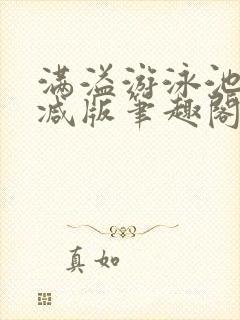 满溢游泳池
减版笔趣阁
真如